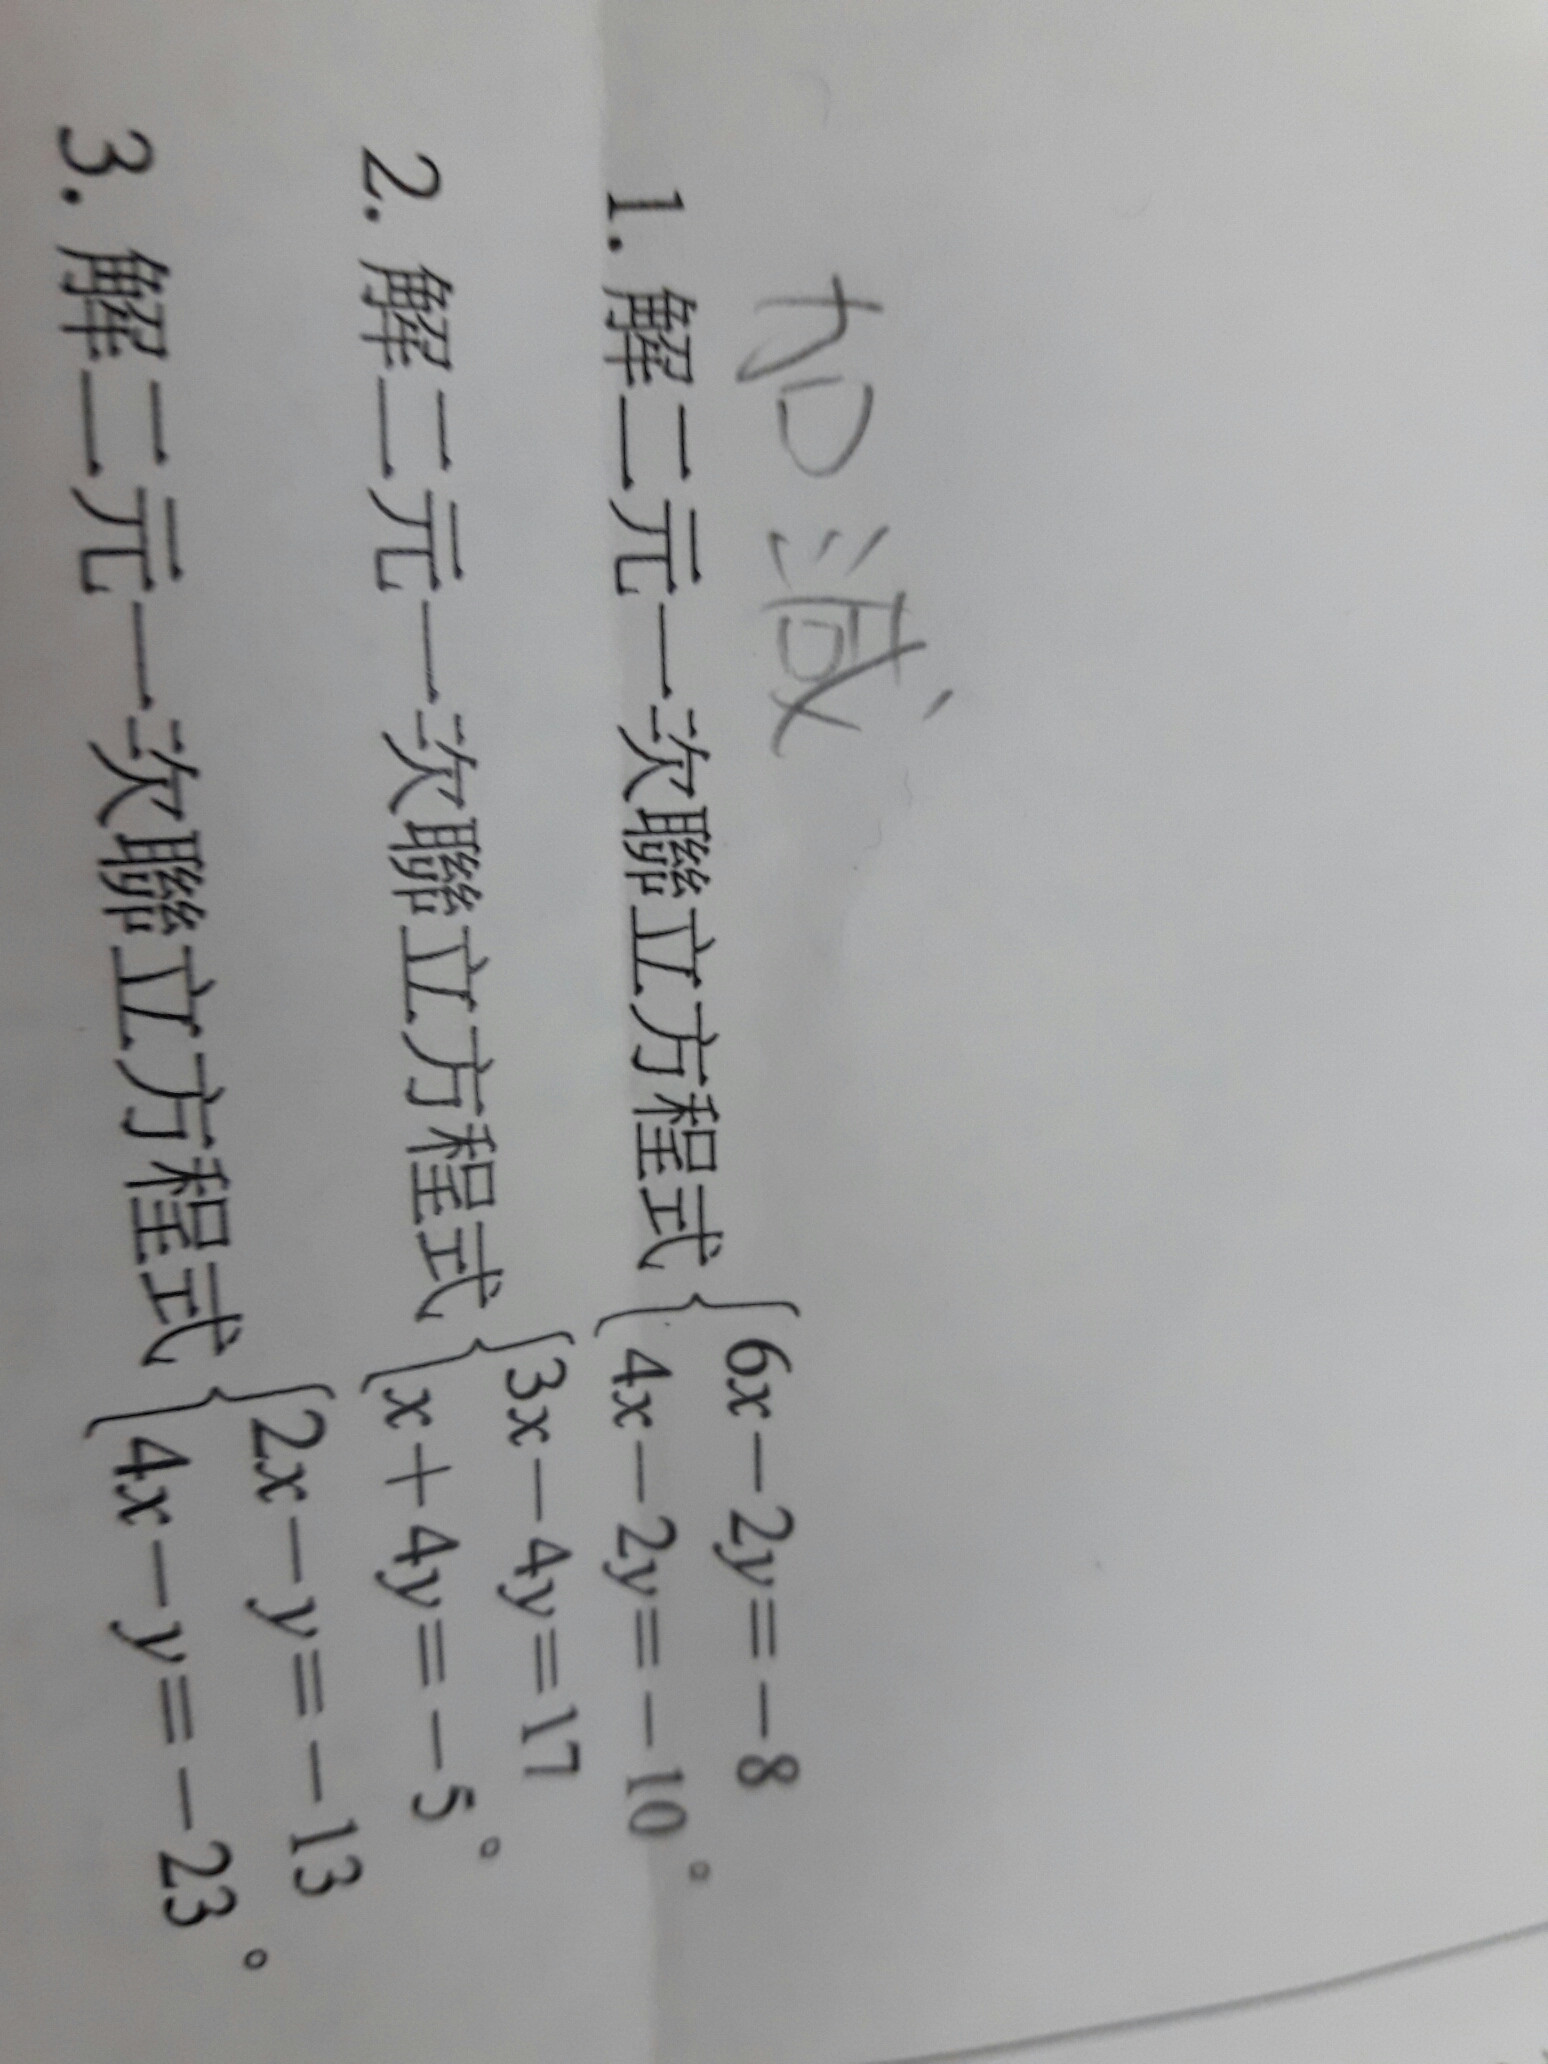 加減
1. 解二元一次聯立方程式{6x－2y＝－8
4x－2y＝－10。
2. 解二元一次聯立方程式{3x－4y＝17
x＋4y＝－5。
3. 解二元一次聯立方程式{2x－y＝－13
4x－y＝－23。